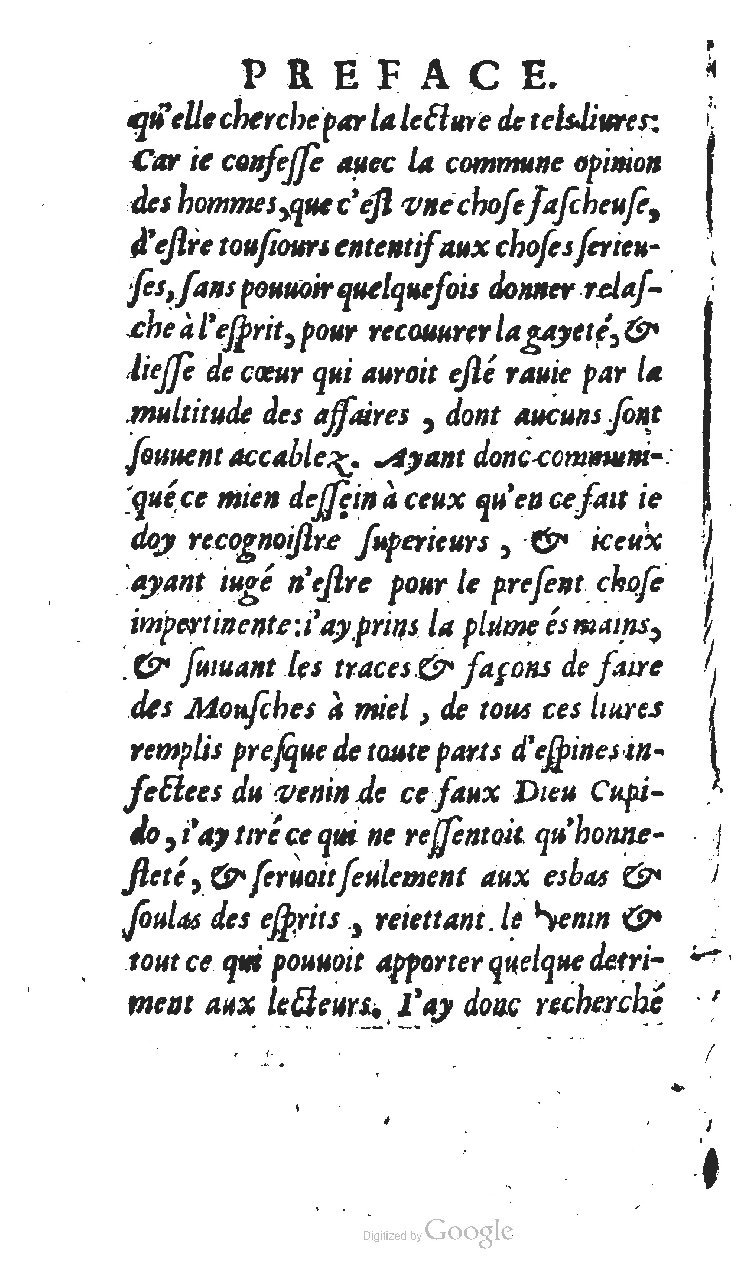 PREFACE.
qu'elle cherche par la lecture de tels liures:
Car ie confeſſe auec la commune opinion
des hommes, que c'eſt vne choſe faſcheuſe,
d'eſtre touſiours ententif aux choſes ſerieu-
ſes, ſans pouuoir quelquefois donner relaſ-
che à l'eſprit, pour recouurer la gayeté, &
lieſſe de cœur qui auroit eſté rauie par la
multitude des affaires , dont aucuns ſont
ſouuent accablez. Ayant donc communi-
qué ce mien deſſein à ceux qu'en ce fait ie
doy recognoiſtre ſuperieurs , & iceux
ayant iugé n'eſtre pour le preſent choſe
impertinente: i'ay prins la plume és mains,
& ſuiuant les traces & façons de faire
des Mouſches à miel , de tous ces liures
remplis preſque de toute parts d'eſpines in-
fectees du venin de ce faux Dieu Cupi-
do , i'ay tiré ce qui ne reſſentoit qu'honne-
ſteté , & ſeruoit ſeulement aux esbas &
ſoulas des eſprits , reiettant le venin &
tout ce qui pouuoit apporter quelque detri-
ment aux lecteurs. I'ay donc recherché
Digitized by Google